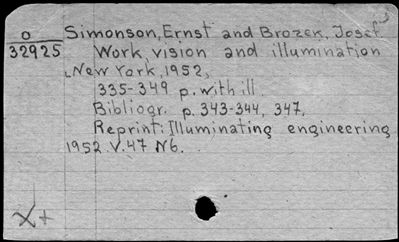 O Simonson, Ernst and Brozek, Josef.
32925 Work, vision and illumination
New York, 1952,
335-349 p. with ill.
Bibliogr. p. 343-344, 347.
Reprint: Illuminating engineering
1952. V. 47 N6.
X+